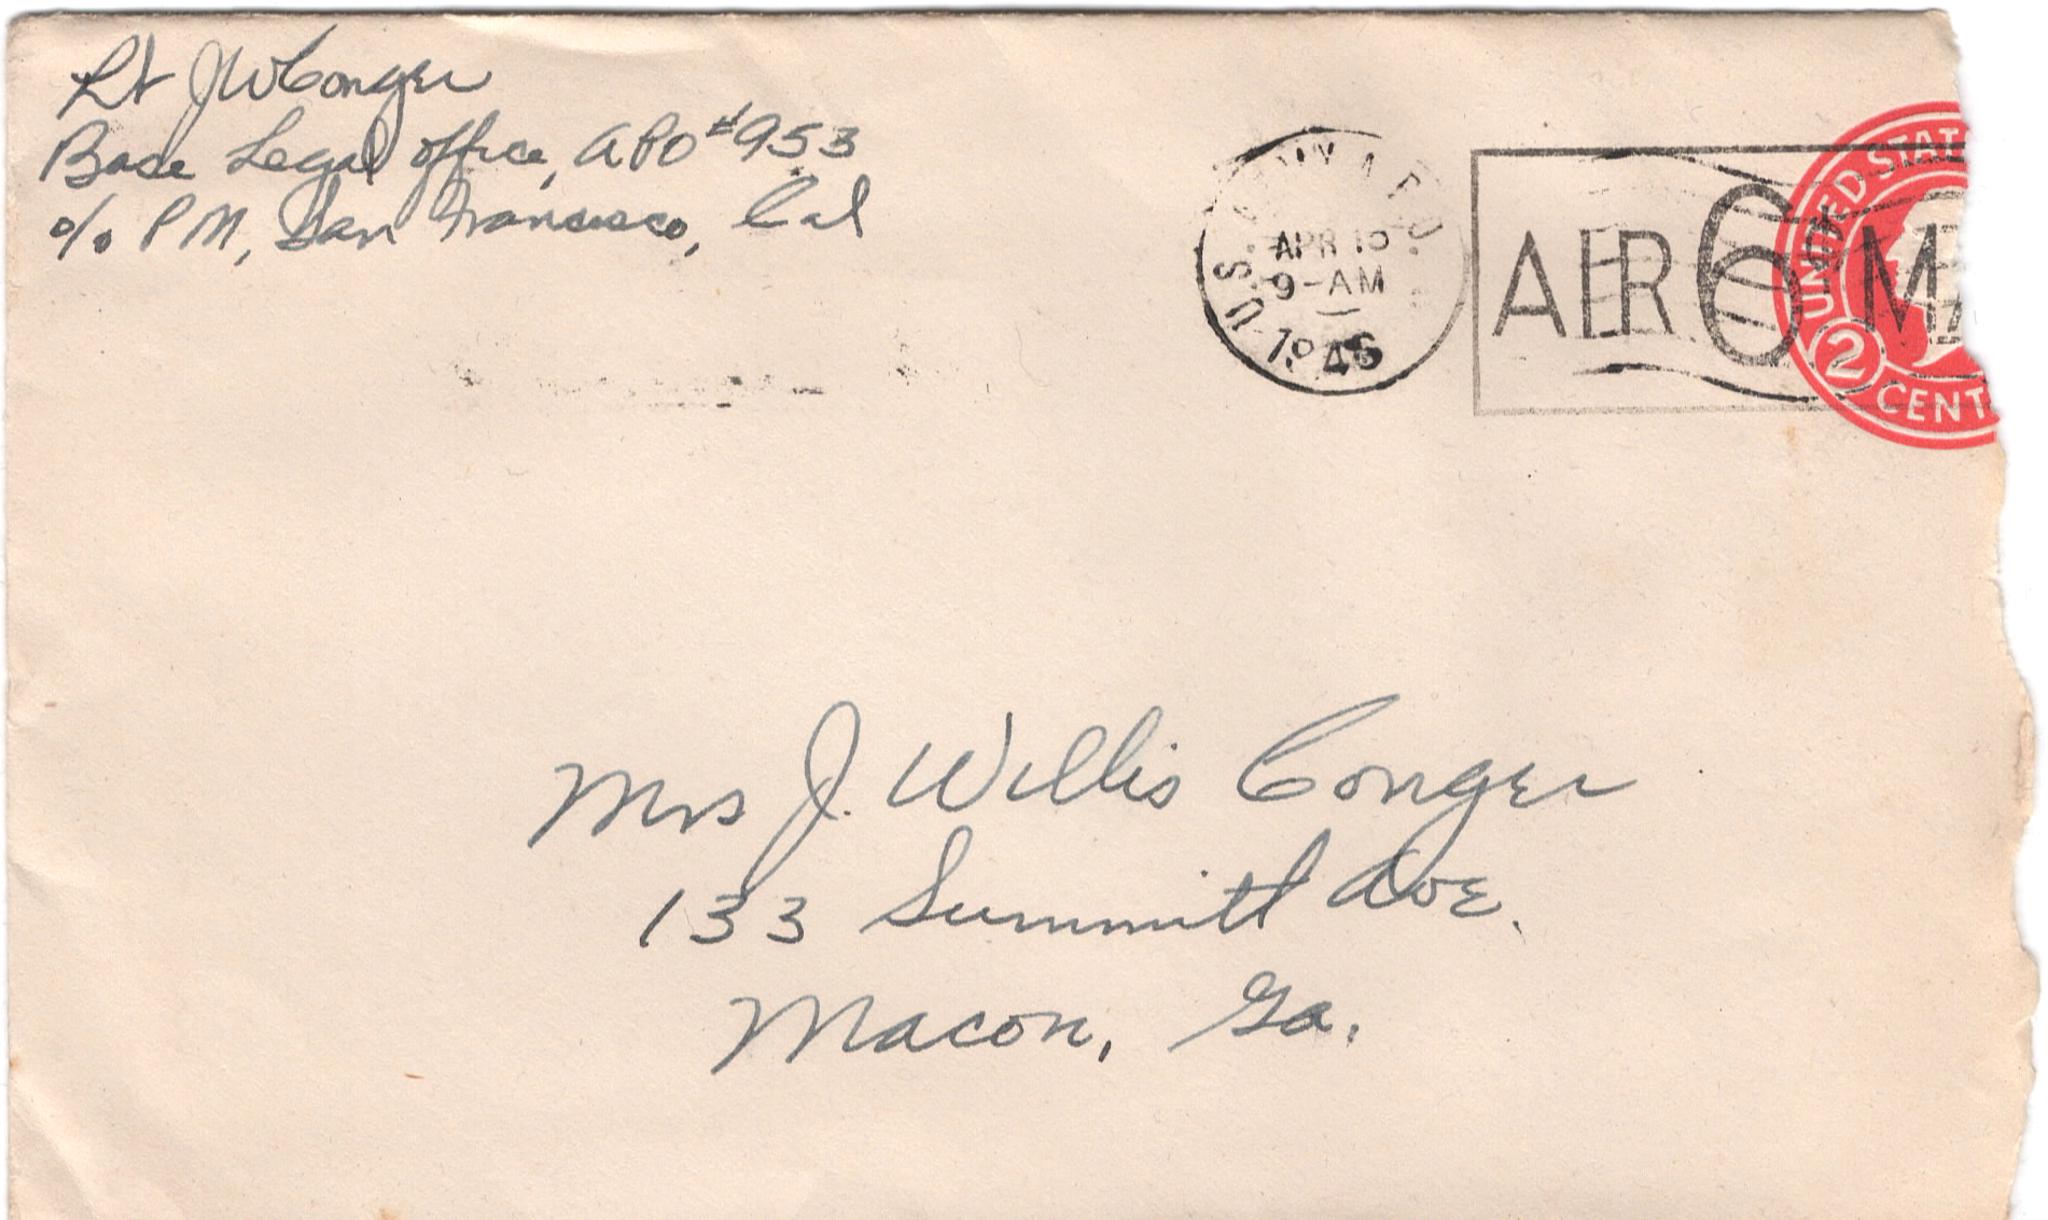 Lt JW Conger
Base Legal Office, APO #953
c/o PM, San Francisco, Cal
U.S. ARMY A.P.O.
APR
9-AM
1946
AIR 6 MA
UNITED STAT
2 CENT
Mrs J. Willis Conger
133 Summitt Ave.
Macon, Ga.